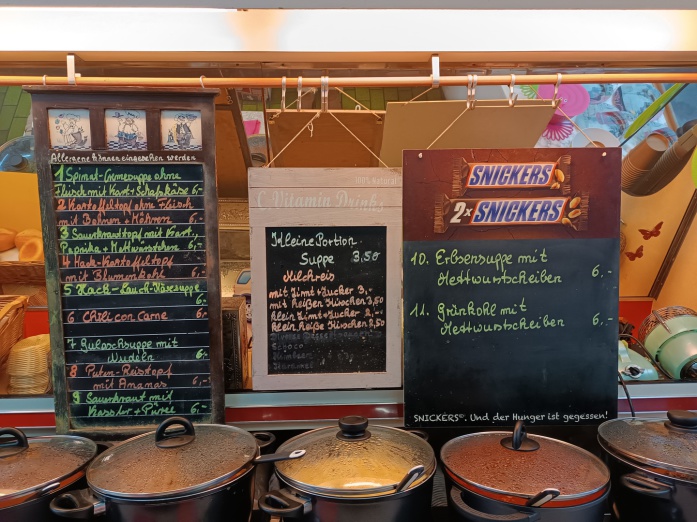 Allergene können eingesehen werden
1 Spinat-Gemüsesuppe ohne
Fleisch mit Kart + Schafskäse 6,-
2 Kartoffeltopf ohne Fleisch
mit Bohnen + Möhren 6,-
3 Sauerkrauttopf mit Kart.,
Paprika + Mettwürstchen 6,-
4 Hack-Kartoffeltopf
mit Blumenkohl 6,-
5 Hack-Lauch-Käsesuppe
6,-
6 Chili con Carne 6,-
7 Gulaschsuppe mit
Nudeln 6,-
8 Puten-Reistopf
mit Ananas 6,-
9 Sauerkraut mit
Kassler + Püree 6,-
100% Natural
C Vitamin Drinks
Kleine Portion
Suppe 3,50
Milchreis
mit Zimt + Zucker 3,-
mit heißen Kirschen 3,50
klein Zimt + Zucker 2,-
klein heiße Kirschen 2,50
SNICKERS
2x SNICKERS
10. Erbsensuppe mit
Mettwurstscheiben 6,-
11. Grünkohl mit
Mettwurstscheiben 6,-
SNICKERS®. Und der Hunger ist gegessen!